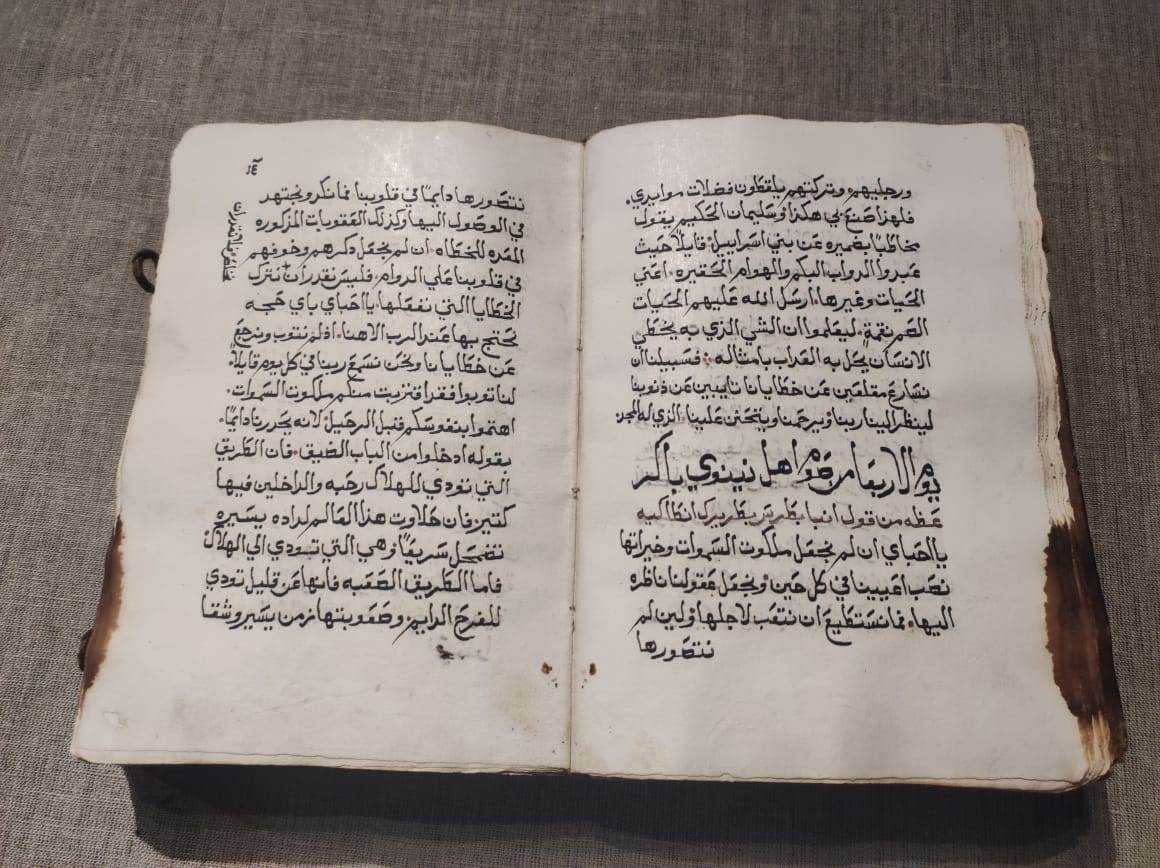 ورجليهم وتركتهم يلقطون فضلات موايدي.
فلهذا صنع بي هكذا وسليمان الحكيم يقول
مخاطباً بضميره عن بني اسراييل قايلاً حيث
عبدوا الدواب البكم والهوام الحقيره اعني
الحيات وغيرها ارسل الله عليهم الحيات
الصم نقمة ليعلموا ان الشي الذي به يخطي
الانسان يحل به العداب بامثاله فسبيلنا ان
نسارع مقلعين عن خطايانا تايبين عن ذنوبنا
لينظر الينا ربنا ويرحمنا ويتحنن علينا الذي له المجد
يوم الاربعا من صوم اهل نينوي باكر
عظه من قول انبا بطرس بطريرك انطاكيه
يا احباي ان لم نجعل ملكوت السموات وخيراتها
نصب اعييننا في كل حين ونجعل عقولنا ناظره
اليها فما نستطيع ان نتعب لاجلها ولين لم
نتصورها
١٤
نتصورها دايماً في قلوبنا فما نكر ونجتهد
في الوصول اليها وكذلك العقوبات المذكوره
المعده للخطاه ان لم نجعل ذكرهم وخوفهم
في قلوبنا علي الدوام فليس نقدر ان نترك
الخطايا التي نفعلها يا احباي باي حجه
نحتج بها عند الرب الاهنا اذ لم نتوب ونرجع
عن خطايانا ونحن نسمع ربنا في كل يوم قايلاً
لنا توبوا فقد اقتربت منكم ملكوت السموات
اهتموا بنفوسكم قبل الرحيل لانه يحدرنا دايماً
بقوله ادخلوا من الباب الضيق فان الطريق
التي تودي للهلاك رحبه والداخلين فيها
كتير فان حلاوت هذا العالم لداده يسيره
تضمحل سريعاً وهي التي تودي الي الهلاك
فاما الطريق الصعبه فانها عن قليل تودي
للفرح الدايم وصعوبتها زمن يسير وشقا